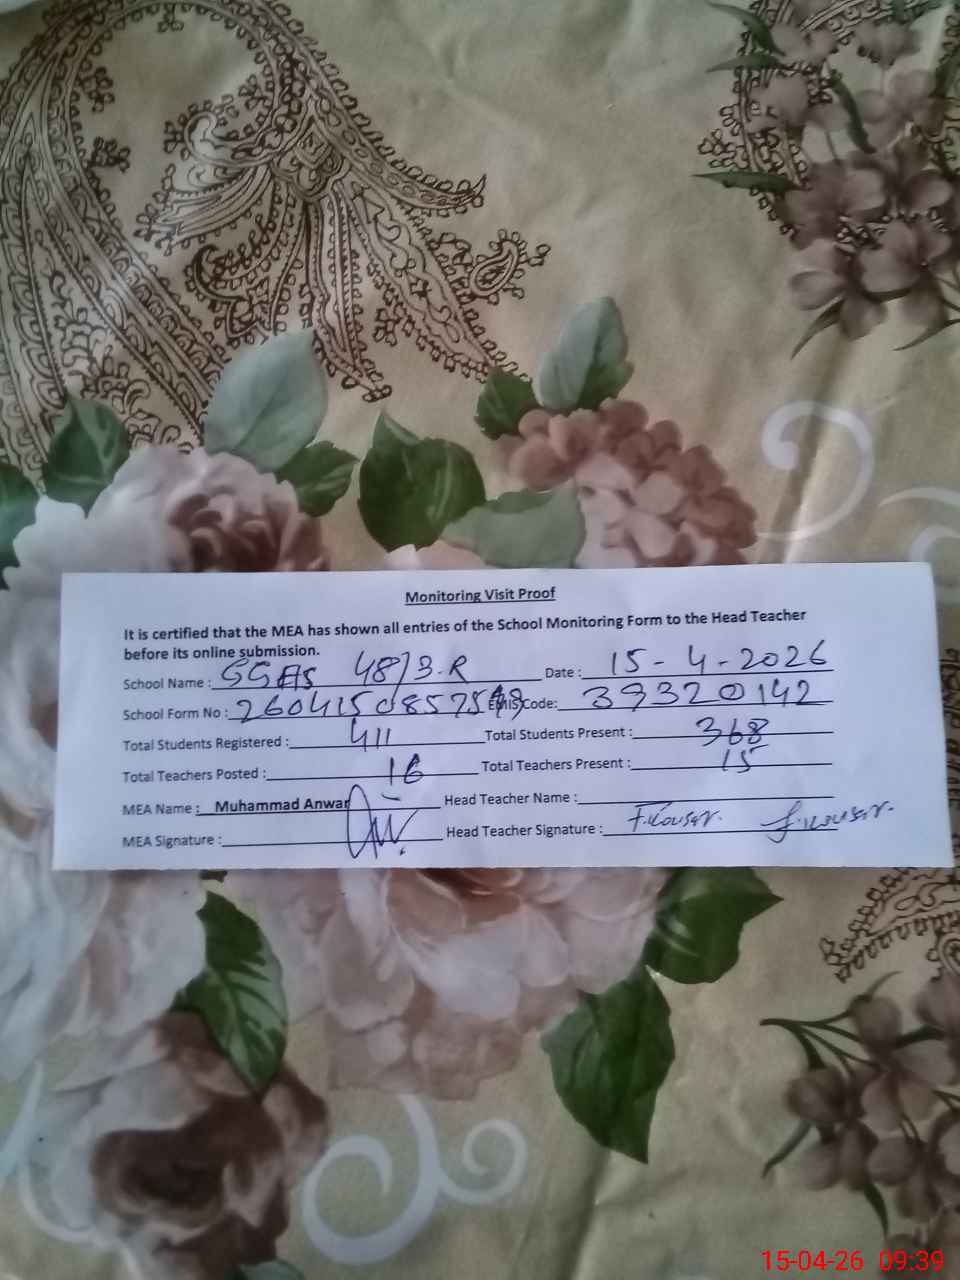 Monitoring Visit Proof
It is certified that the MEA has shown all entries of the School Monitoring Form to the Head Teacher
before its online submission.
School Name : GGHS 48/3-R Date : 15-4-2026
School Form No : EMIS Code: 39320142
Total Students Registered : 411 Total Students Present : 368
Total Teachers Posted : 16 Total Teachers Present : 15
MEA Name : Muhammad Anwar Head Teacher Name :
MEA Signature : Head Teacher Signature : F.Kousar. F.Kousar.
15-04-26 09:39